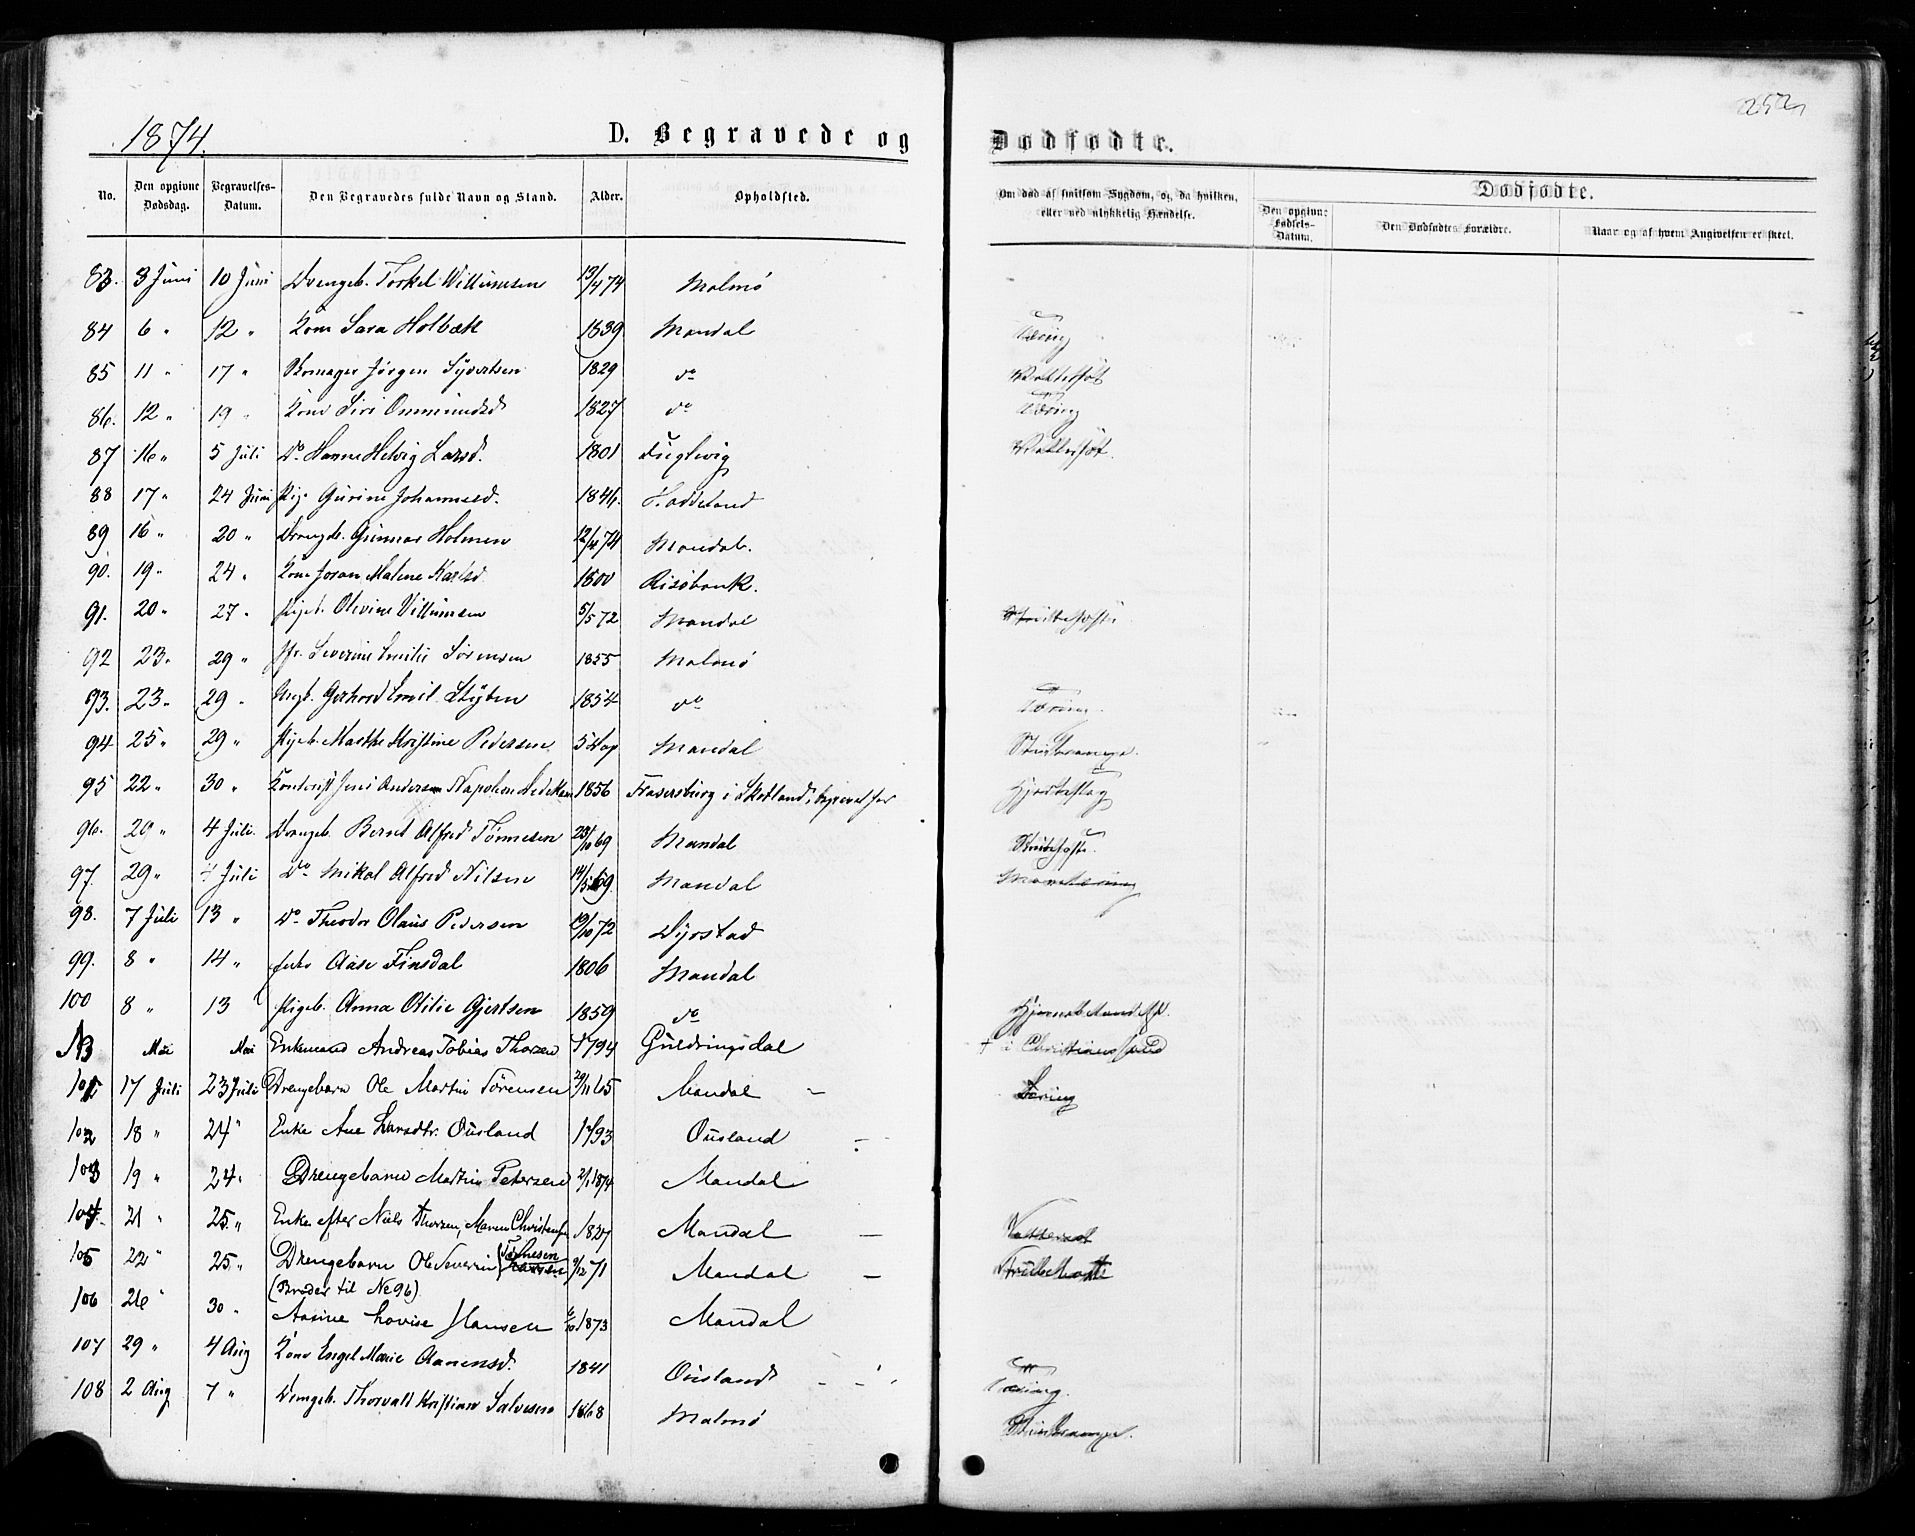 1874.
252
D. Begravede og Dødfødte.
No. Den opgivne Dødsdag. Begravelses-Datum. Den Begravedes fulde Navn og Stand. Alder. Opholdsted. Om død af smitsom Sygdom, og da hvilken, eller ved ulykkelig Hændelse. Dødfødte.
Den opgivne Fødsels-Datum. Den Dødfødtes Forældre. Naar og af hvem Angivelsen er skeet.
83. 3 Juni 10 Juni Drengeb. Torkel Willumsen 13/4 74 Malmø
84 6 " 12 " Kone Sara Holbæk 1839 Mandal Tæring
85 11 " 17 " Skomager Jørgen Syvertsen 1829 do Vattersot
86. 12 " 19 " Kone Siri Ommundsd 1827 do Tæring
87 16 " 5 Juli Do. Hanne Helvig Larsd. 1801 Fuglevig Vattersot.
88 17 " 24 Juni Pige Gurine Johannesd. 1846. Haddeland
89 16 " 20 " Drengb. Gunnar Holmen 12/4 74 Mandal.
90. 19 " 24 " Kone Joran Malene Karlsd. 1800 Risøbank.
91. 20 " 27 " Pigeb. Olivine Villumsen 5/5 72 Mandal
92 23 " 29 " Severine Emilie Sørensen 1855 Malmø
93. 23 " 29 " Ungk. Gerhard Emil Styben 1854 do Tæring.
94 25 " 29 " Pigeb. Marthe Kristine Pedersen 5 Dag Mandal
95 22 " 30 " Jens Andersen Napoleon 1856 Frasersburg i Skotland, Hjerteslag
96. 29 " 4 Juli. Drengeb. Bernt Alfred Tønnesen 23/10 69 Mandal
97. 29 " Juli Do Mikal Alfred Nilsen 14/5 69. Mandal
98. 7 Juli 13 " Do. Theodor Olaus Pedersen 19/10 72 Dyrstad
99. 8 " 14 " Enke Aase Finsdal 1806 Mandal
100 8 " 13 Pigeb. Anna Otilie Gjertsen 1859 do
NB Mai Mai Enkemand Andreas Tobias Thorsen 1794 Guldringsdal † i Christianssand
101 17 Juli 23 Juli Drengebarn Ole Martin Sørensen 29/11 65 Mandal Tæring
102 18 " 24 " Enke Ane Larsdtr. Ousland 1793 Ousland
103 19 " 24 " Drengebarn Martin Petersen 2/1 1874 Mandal
104. 21 " 25. " Enke efter Niels Thorsen, Maren 1827 Mandal Vattersot
105 22 " 25. " Drengebarn Ole Severin Tønnesen 9/12 71 Mandal
(Broder til No 96)
106 26 " 30 " Aasine Lovise Hansen 6/10 1873 Mandal
107 29 " 4 Aug Kone Engel Marie Aanensd. 1841 Ousland Tæring.
108 2 Aug 7 " Drengeb. Thorvald Kristian Salvesen 1868 Malmø